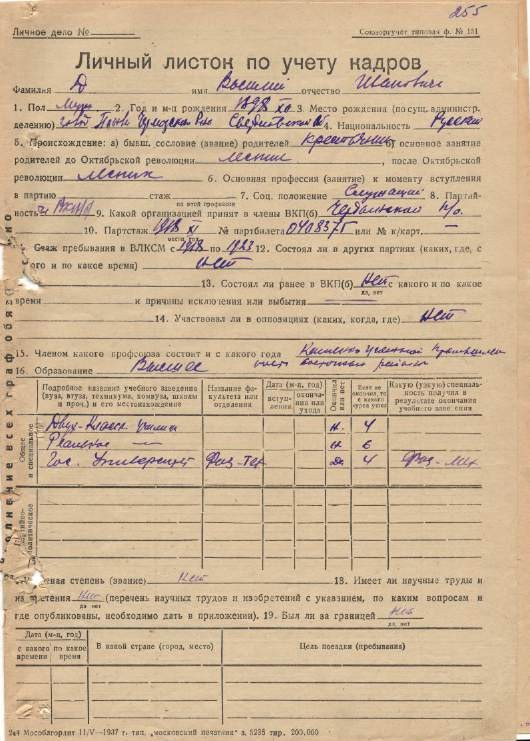 255
Личное дело № Союзоргучет типовая ф. № 151
Личный листок по учету кадров
Фамилия Д имя Василий отчество Иванович
1. Пол Муж 2. Год и м-ц рождения 1898 XII 3. Место рождения (по сущ. администр.
делению) Свердловской 4. Национальность Русский
5. Происхождение: а) бывш. сословие (звание) родителей крестьянин б) основное занятие
родителей до Октябрьской революции лесник, после Октябрьской
революции лесник 6. Основная профессия (занятие) к моменту вступления
в партию стаж 7. Соц. положение Служащий 8. Партий-
по этой профессии
ность 9. Какой организацией принят в члены ВКП(б)
10. Партстаж 1918 XI № партбилета 0408375 или № к/карт. —
месяц, год
Стаж пребывания в ВЛКСМ с 1918 по 1923 12. Состоял ли в других партиях (каких, где, с
ого и по какое время) нет
13. Состоял ли ранее в ВКП(б) Нет с какого и по какое
да, нет
время и причины исключения или выбытия
14. Участвовал ли в оппозициях (каких, когда, где) Нет
15. Членом какого профсоюза состоит и с какого года
16. Образование Высшее
Подробное название учебного заведения (вуза, втуза, техникума, комвуза, школы и проч.) и его местонахождение Название факультета или отделения Дата (м-ц, год) вступления окончания или ухода Окончил или нет Если не окончил, то с какого курса ушел Какую (узкую) специальность получил в результате окончания учебного заведения
Общее и специальное
Двух-Классн. училищ н. 4
Реальное — н 6
Гос. Университет Физ-Мех Да 4 Физ-Мех
партийно-политическое
ная степень (звание) Нет 18. Имеет ли научные труды и
изобретения Нет (перечень научных трудов и изобретений с указанием, по каким вопросам и
да, нет
где опубликованы, необходимо дать в приложении). 19. Был ли за границей Нет
да, нет
Дата (м-ц, год) В какой стране (город, место) Цель поездки (пребывания)
с какого времени по какое время
244 Мособлгорлит 11/V—1937 г. тип. „московский печатник" з. 5235 тир. 200.000